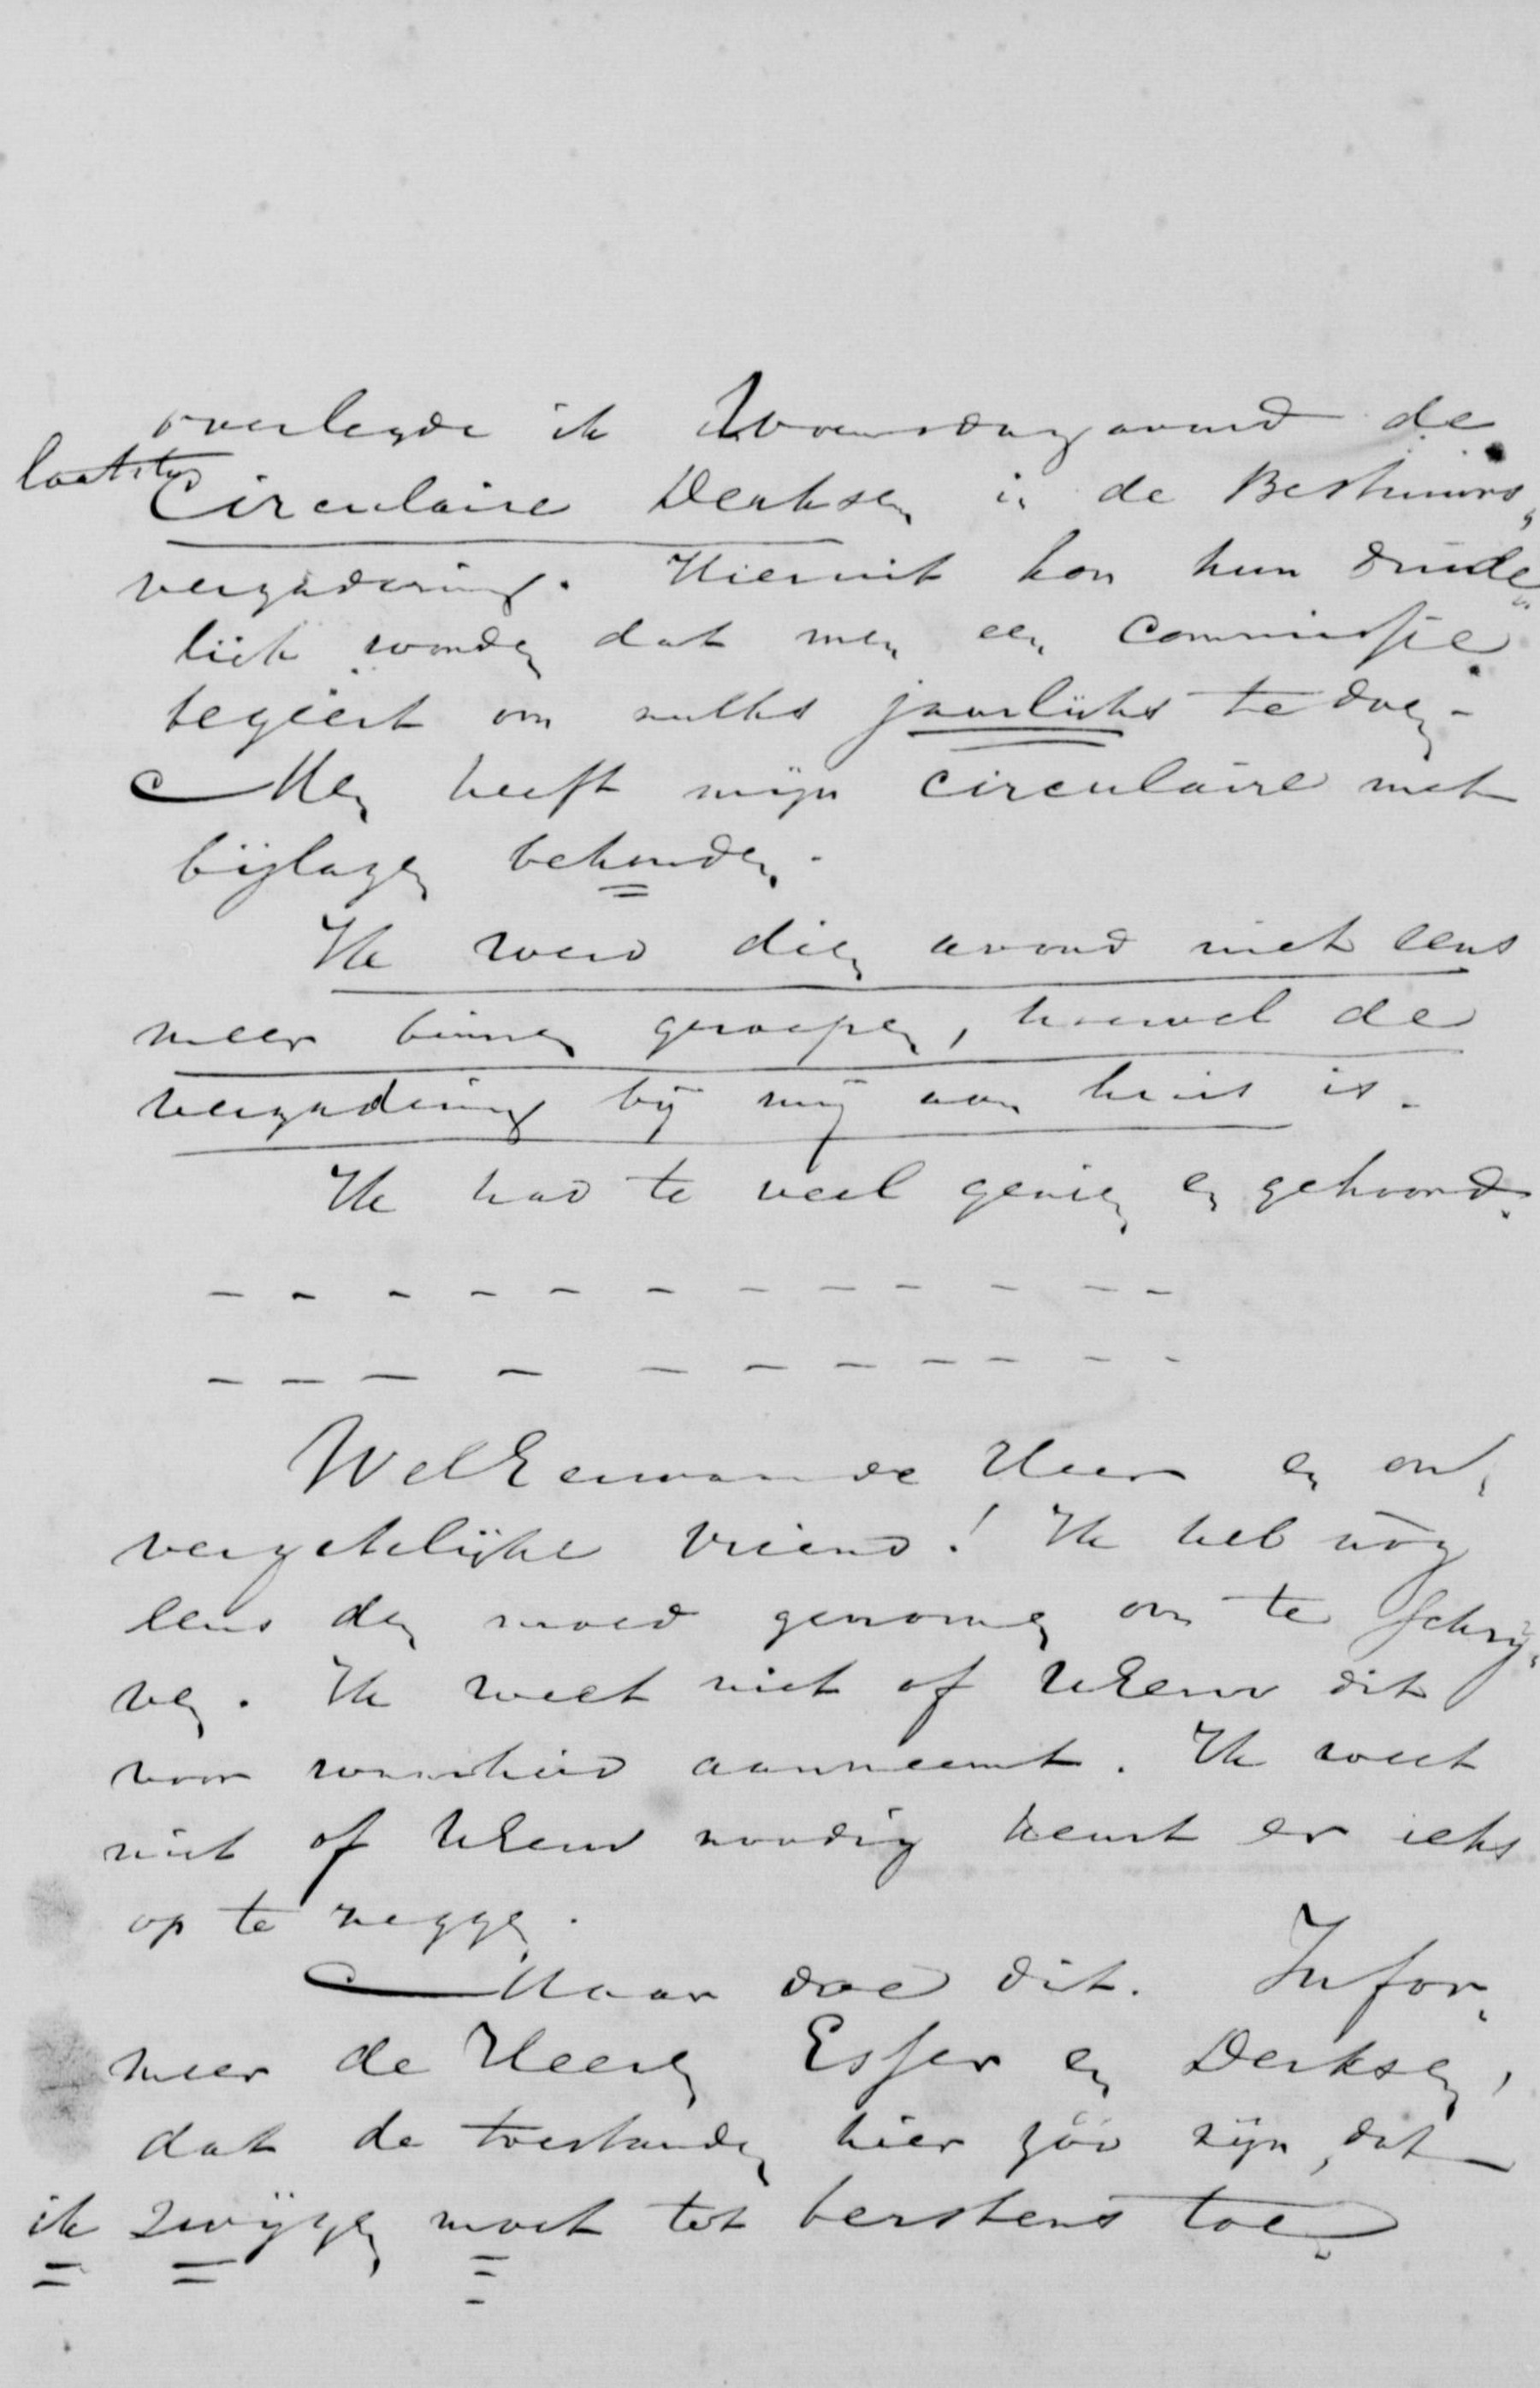 overlegde ik Woensdagavond de
laatste
Circulaire Derksen in de Bestuurs„
vergadering. Hieruit kon hun duide„
lijk worden dat men een Commissie
begeert om zulks jaarlijks te doen –
Men heeft mijn circulaire met
bijlagen behouden.
Ik werd dien avond niet eens
meer binnen geroepen, hoewel de
vergadering bij mij aan huis is.
Ik had te veel gezien en gehoord.
– – – – – – – – – – – –
– – – – – – – – – – –
WelEerwaarde Heer en on„
vergetelijke Vriend! Ik heb nog
eens den moed genomen om te schrij„
ven. Ik weet niet of UEerw dit
voor waarheid aanneemt. Ik weet
niet of UEerw noodig keurt er iets
op te zeggen.
Maar doe dit. Infor„
meer de Heeren Esser en Derksen,
dat de toestanden hier zóó zijn, dat
ik zwijgen moet tot berstens toe